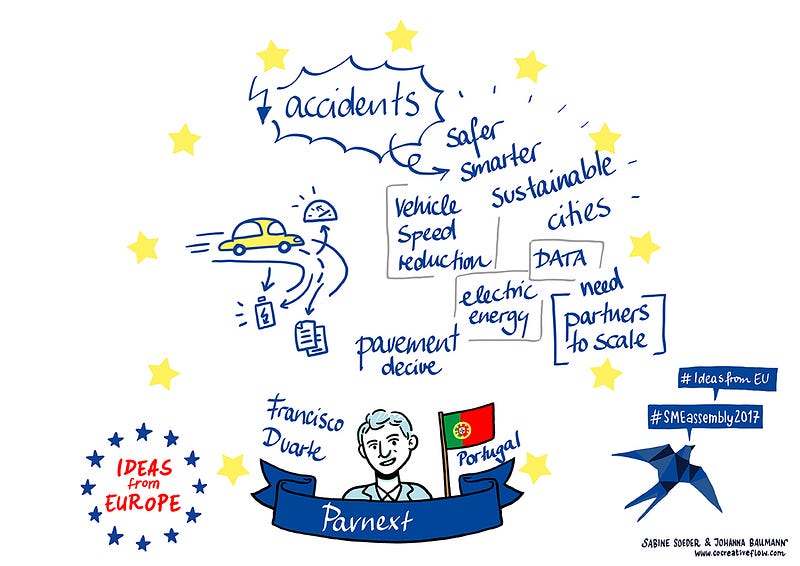 accidents
safer
smarter
sustainable
cities
vehicle
speed
reduction
DATA
electric
energy
need
partners
to scale
pavement
decive
Francisco
Duarte
Portugal
Pavnext
IDEAS
from
EUROPE
#Ideasfrom EU
#SMEassembly2017
SABINE SOEDER & JOHANNA BAUMANN
www.cocreativeflow.com